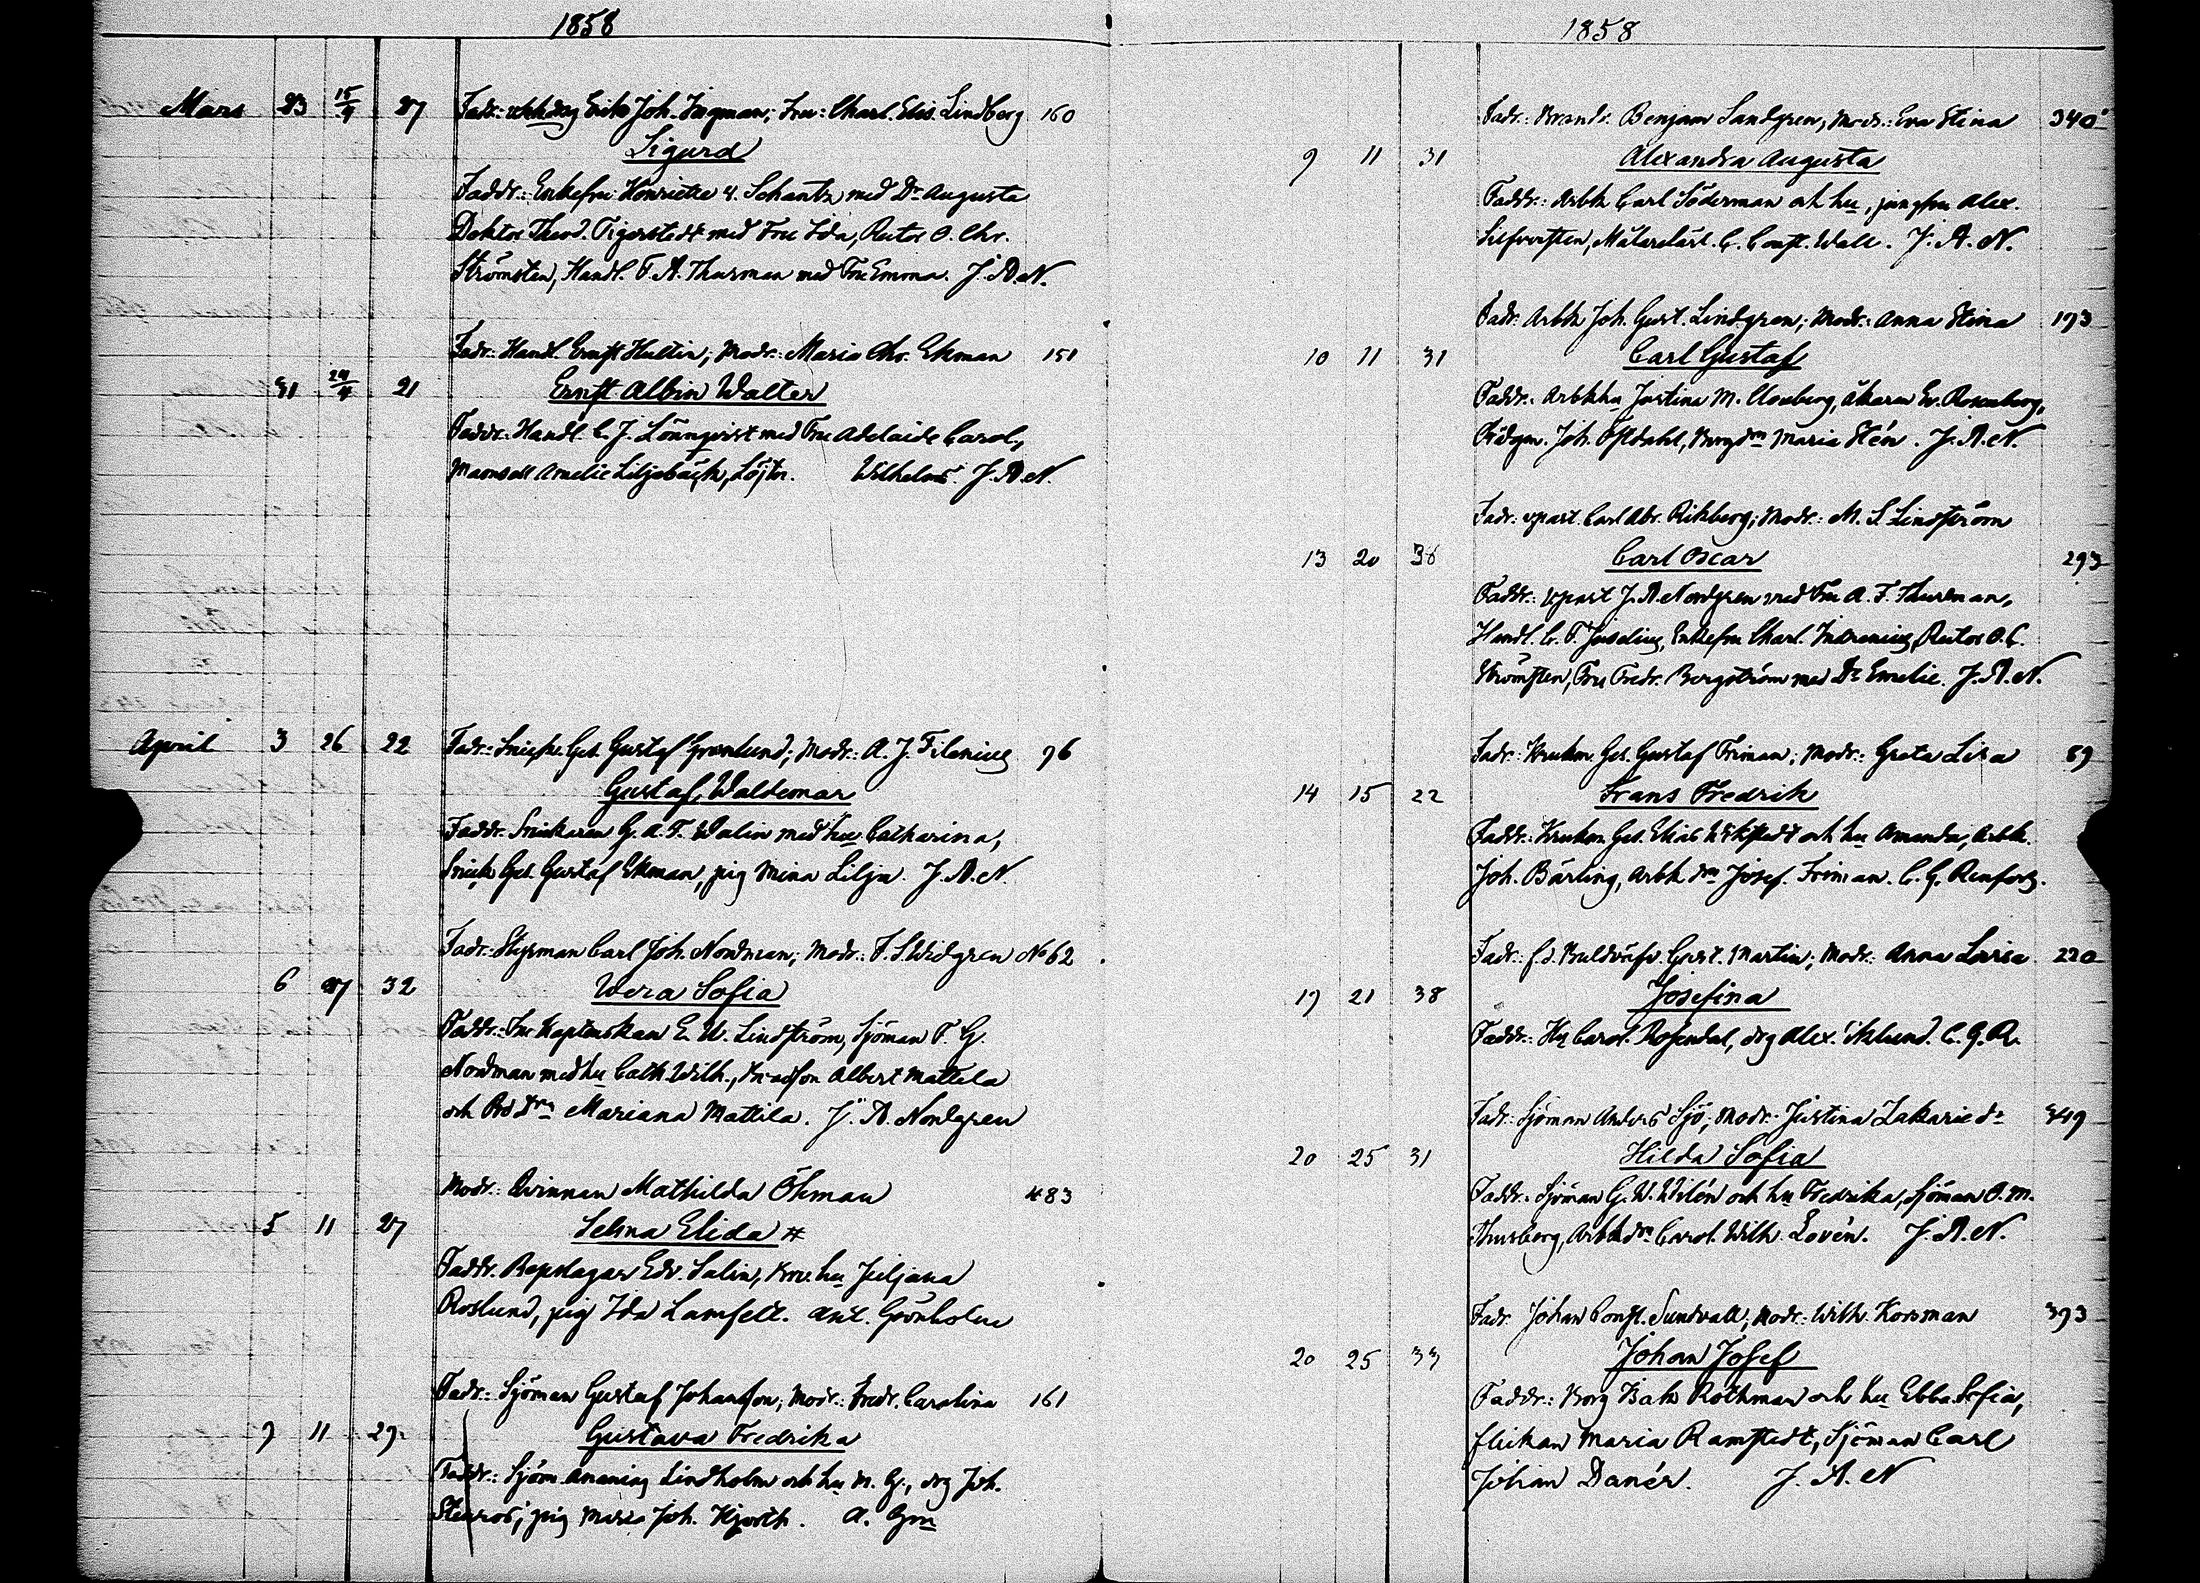 1858
Mars 23 15/4 27 Fadr: Erik Joh. Ingman; Fru: Charl. Elis. Lindberg 160
Sigurd
Faddr: Enkefru Henriette v. Schantz med Dr Augusta
Doktor Theod. Tigerstedt med Fru Ida, Rector O. Chr.
Strömsten, Handl. F. A. Thurman med Fru Emma. J. A. N.
Fadr: Handl. Ernst Hultin; Modr: Maria Chr. Ekman 151
31 24/4 21 Ernst Albin Walter
Faddr: Handl. C. J. Lönnqvist med Fru Adelaide Carol,
Mamsell Amelie Liljebäck, Löjtn. Wilhelms. J. A. N.
April 3 26 22 Fadr: Snick. Ges. Gustaf Grönlund; Modr: A. J. Filenius 96
Gustaf Waldemar
Faddr: Snickaren G. A. F. Walin med hu Catharina,
Snick Ges. Gustaf Ekman, pig Mina Lilja. J. A. N.
Fadr: Styrman Carl Joh. Nordman; Modr: F. S. Widgren No 62
6 27 32 Wera Sofia
Faddr: Fru Kaptenskan E. W. Lindström, Sjöman F. G.
Nordman med hu Cath. Wilh., Albert Mattila
och Mariana Mattila. J. A. Nordgren
Modr: Qvinnan Mathilda Öhman 483
5 11 27 Selma Elida #
Faddr: Repslagar Edv. Salin, hu Juljana
Roslund, pig Ida Lamfelt. Ant. Grönholm
Fadr: Sjöman Gustaf Johansson; Modr: Fredr. Carolina 161
9 11 29 Gustava Fredrika
Faddr: Sjöm. Ananias Lindholm och hu M. G., drg Joh.
Stenros, pig Maria Joh. Hjorth. A. Gm
1858
Fadr: Brandv. Benjam Sandgren, Modr: Eva Stina 340
9 11 31 Alexandra Augusta
Faddr: Arbk Carl Söderman och hu, jungfru Alex.
Silfversten, Målarelärl. C. Const. Wall. J. A. N.
Fadr: Arbk Joh. Gust. Lindgren; Modr: Anna Stina 193
10 11 31 Carl Gustaf
Faddr: Arbkhu Justina M. Åkaren Ev. Rosenberg,
Joh. Östdahl, Maria Stén. J. A. N.
Fadr: vpast. Carl Abr. Rikberg; Modr: M. S. Lindström
13 20 38 Carl Oscar 293
Faddr: vpast J. A. Nordgren med Fru A. F. Thurman,
Handl. C. F. Juselius, Enkefru Charl. Indrenius, Rector O. C.
Strömsten, Fru Fredr. Bergström med Dr Emelie. J. A. N.
Fadr: Krukm. Ges. Gustaf Friman; Modr: Greta Lisa 89
14 15 22 Frans Fredrik
Faddr: Krukm. Ges. Elias Wikstedt och hu Amanda, Arbk.
Joh. Bärling, Arbk dm Josef. Friman. C. G. Renfors.
Fadr: fd. Gust. Martin; Modr: Anna Lovisa 220
19 21 38 Josefina
Faddr: Hu Carol. Rosendal, drg Alex. C. G. R.
Fadr: Sjöman Anders Sjö; Modr: Justina Zakarie dr 349
20 25 31 Hilda Sofia
Faddr: Sjöman G. W. Wilén och hu Fredrika, Sjöman O. M.
Thusberg, Arbk dm Carol. Wilh. Lovén. J. A. N.
Fadr: Johan Const. Sundvall; Modr: Wilh. Korsman 393
20 25 33 Johan Josef
Faddr: Borg Rothman och hu Ebba Sofia,
flickan Maria Ramstedt, Sjöman Carl
Johan Danér. J. A. N